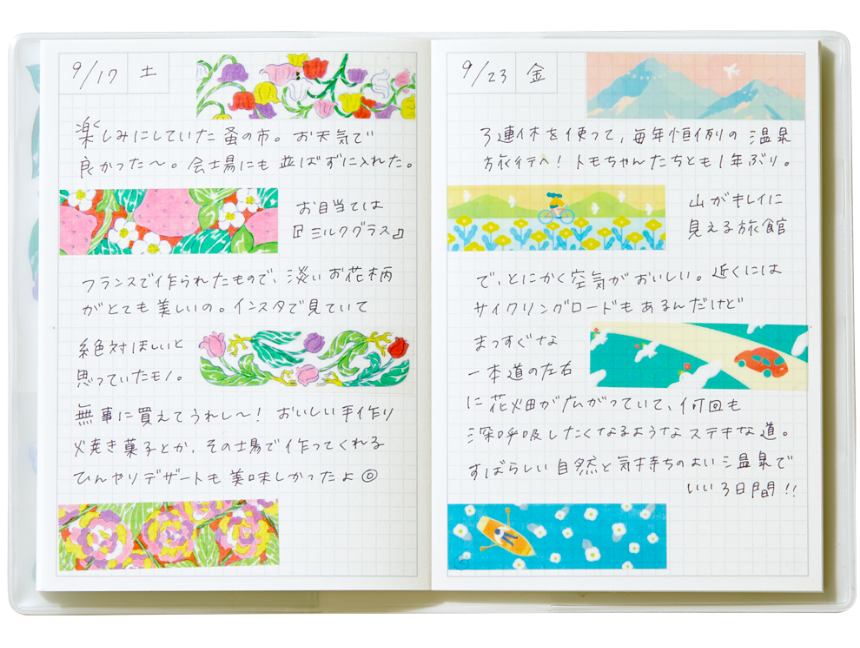 9/17 土
楽しみにしていた蚤の市。お天気で
良かった〜。会場にも並ばずに入れた。
お目当ては
『ミルクグラス』
フランスで作られたもので、淡いお花柄
がとても美しいの。インスタで見ていて
絶対ほしいと
思っていたモノ。
無事に買えてうれし〜！おいしい手作り
焼き菓子とか、その場で作ってくれる
ひんやりデザートも美味しかったよ◎
9/23 金
3連休を使って、毎年恒例の温泉
旅行へ！トモちゃんたちとも1年ぶり。
山がキレイに
見える旅館
で、とにかく空気がおいしい。近くには
サイクリングロードもあるんだけど
まっすぐな
一本道の左右
に花畑が広がっていて、何回も
深呼吸したくなるようなステキな道。
すばらしい自然と気持ちのよい温泉で
いい3日間!!